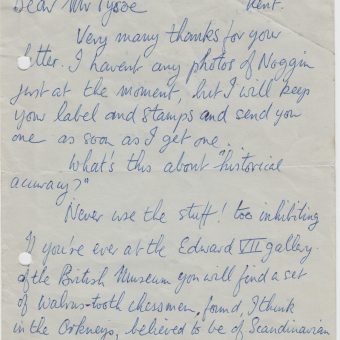 Dear Mr Tysoe
Kent.
Very many thanks for your
letter. I havent any photos of Noggin
just at the moment, but I will keep
your label and stamps and send you
one as soon as I get one..
What's this about "historical
accuracy?"
Never use the stuff! too inhibiting
If you're ever at the Edward VII gallery
of the British Museum you will find a set
of Walrus-tooth chessmen, found, I think
in the Orkneys, believed to be of Scandinavian